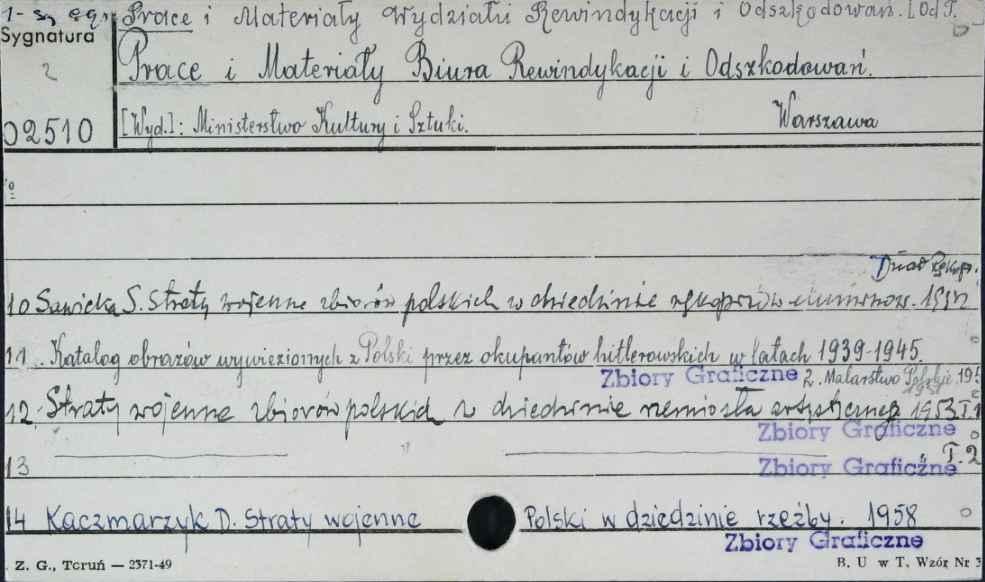 Prace i Materiały Wydziału Rewindykacji i Odszkodowań. [Od T.
Sygnatura
2 Prace i Materiały Biura Rewindykacji i Odszkodowań.
02510 [Wyd.]: Ministerstwo Kultury i Sztuki. Warszawa
Dział Rękop.
10 Sawicka S. Straty wojenne zbiorów polskich w dziedzinie rękopisów iluminow. 1952
11. Katalog obrazów wywiezionych z Polski przez okupantów hitlerowskich w latach 1939-1945.
Zbiory Graficzne 2. Malarstwo Polskie 195
12. Straty wojenne zbiorów polskich w dziedzinie rzemiosła artystycznego 1953 T.1
Zbiory Graficzne
13 T. 2
Zbiory Graficzne
14 Kaczmarzyk D. Straty wojenne Polski w dziedzinie rzeźby. 1958
Zbiory Graficzne
Z. G., Toruń — 2371-49 B. U w T, Wzór Nr 3